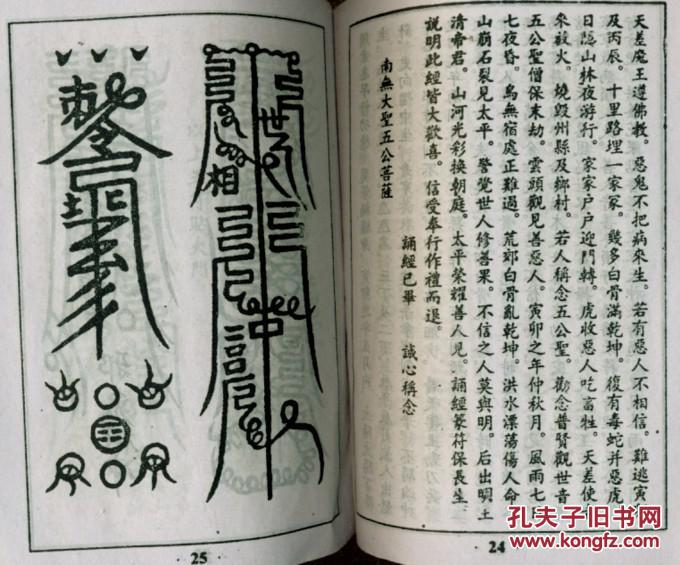 天差魔王遵佛教。惡鬼不把病來生。若有惡人不相信。難逃寅
及丙辰。十里路埋一家家。幾多白骨滿乾坤。復有毒蛇并惡虎
日隱山林夜游行。家家戶戶迎門轉。虎收惡人吃畜牲。天差使
來放火。燒毀州縣及鄉村。若人稱念五公聖。勸念普賢觀世音
五公聖僧保末劫。雲頭觀見善惡人。寅卯之年仲秋月。風雨七日
七夜昏。鳥無宿處正難過。荒郊白骨亂乾坤。洪水漂蕩傷人命
山崩石裂見太平。警覺世人修善果。不信之人莫與明。后出明王
清帝君。山河光彩換朝庭。太平榮耀善人見。誦經篆符保長生。
說明此經皆大歡喜。信受奉行作禮而退。
誦經已畢 誠心稱念
南無大聖五公菩薩
24
相
中
25
孔夫子旧书网
www.kongfz.com